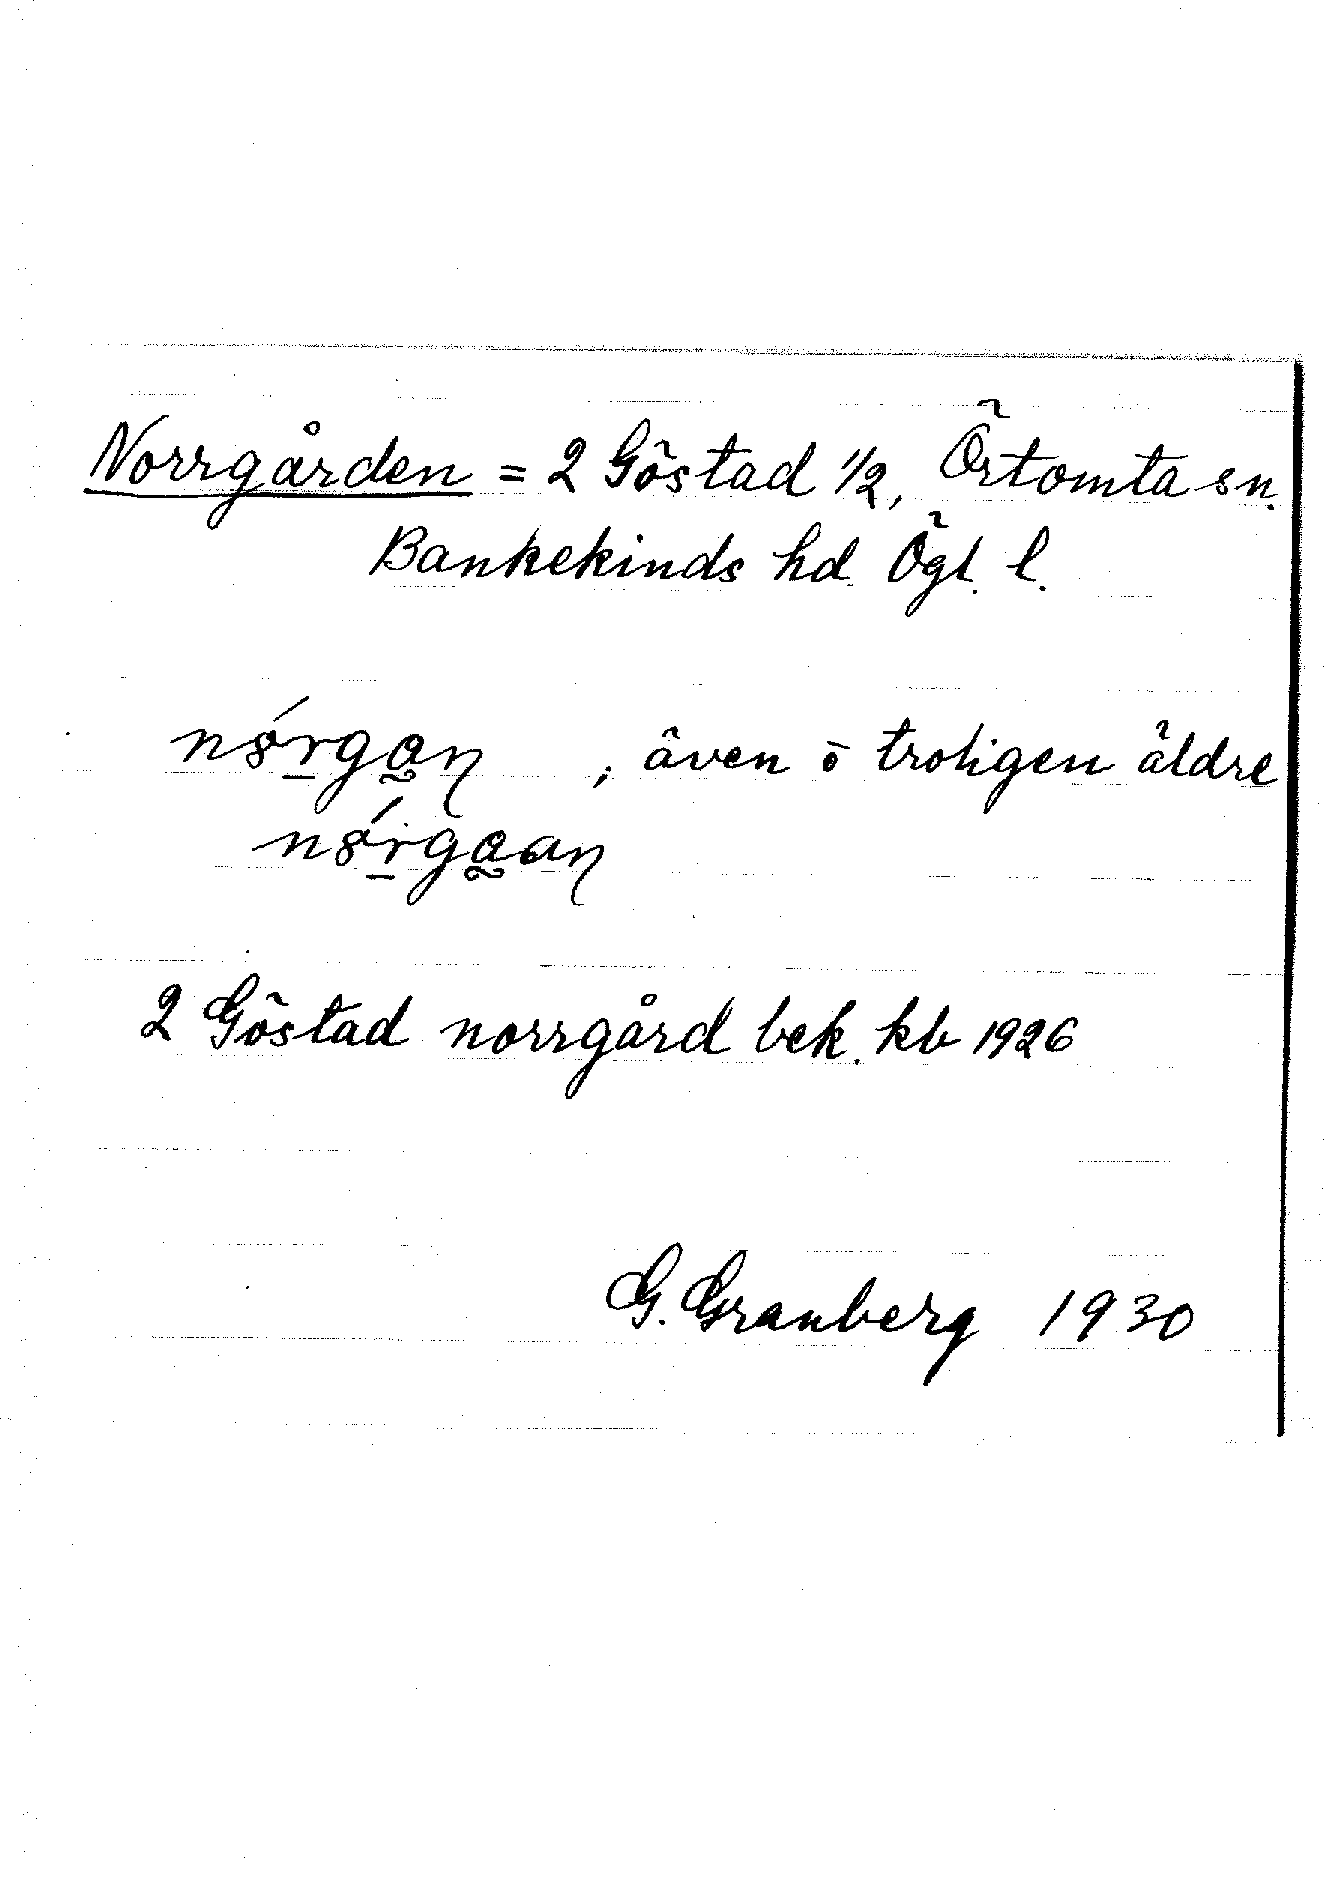 Norrgården = 2 Göstad 1/2, Örtomta sn.
Bankekinds hd. Ögl. l.
, även ō troligen äldre
2 Göstad norrgård bek. kb 1926
G. Granberg 1930